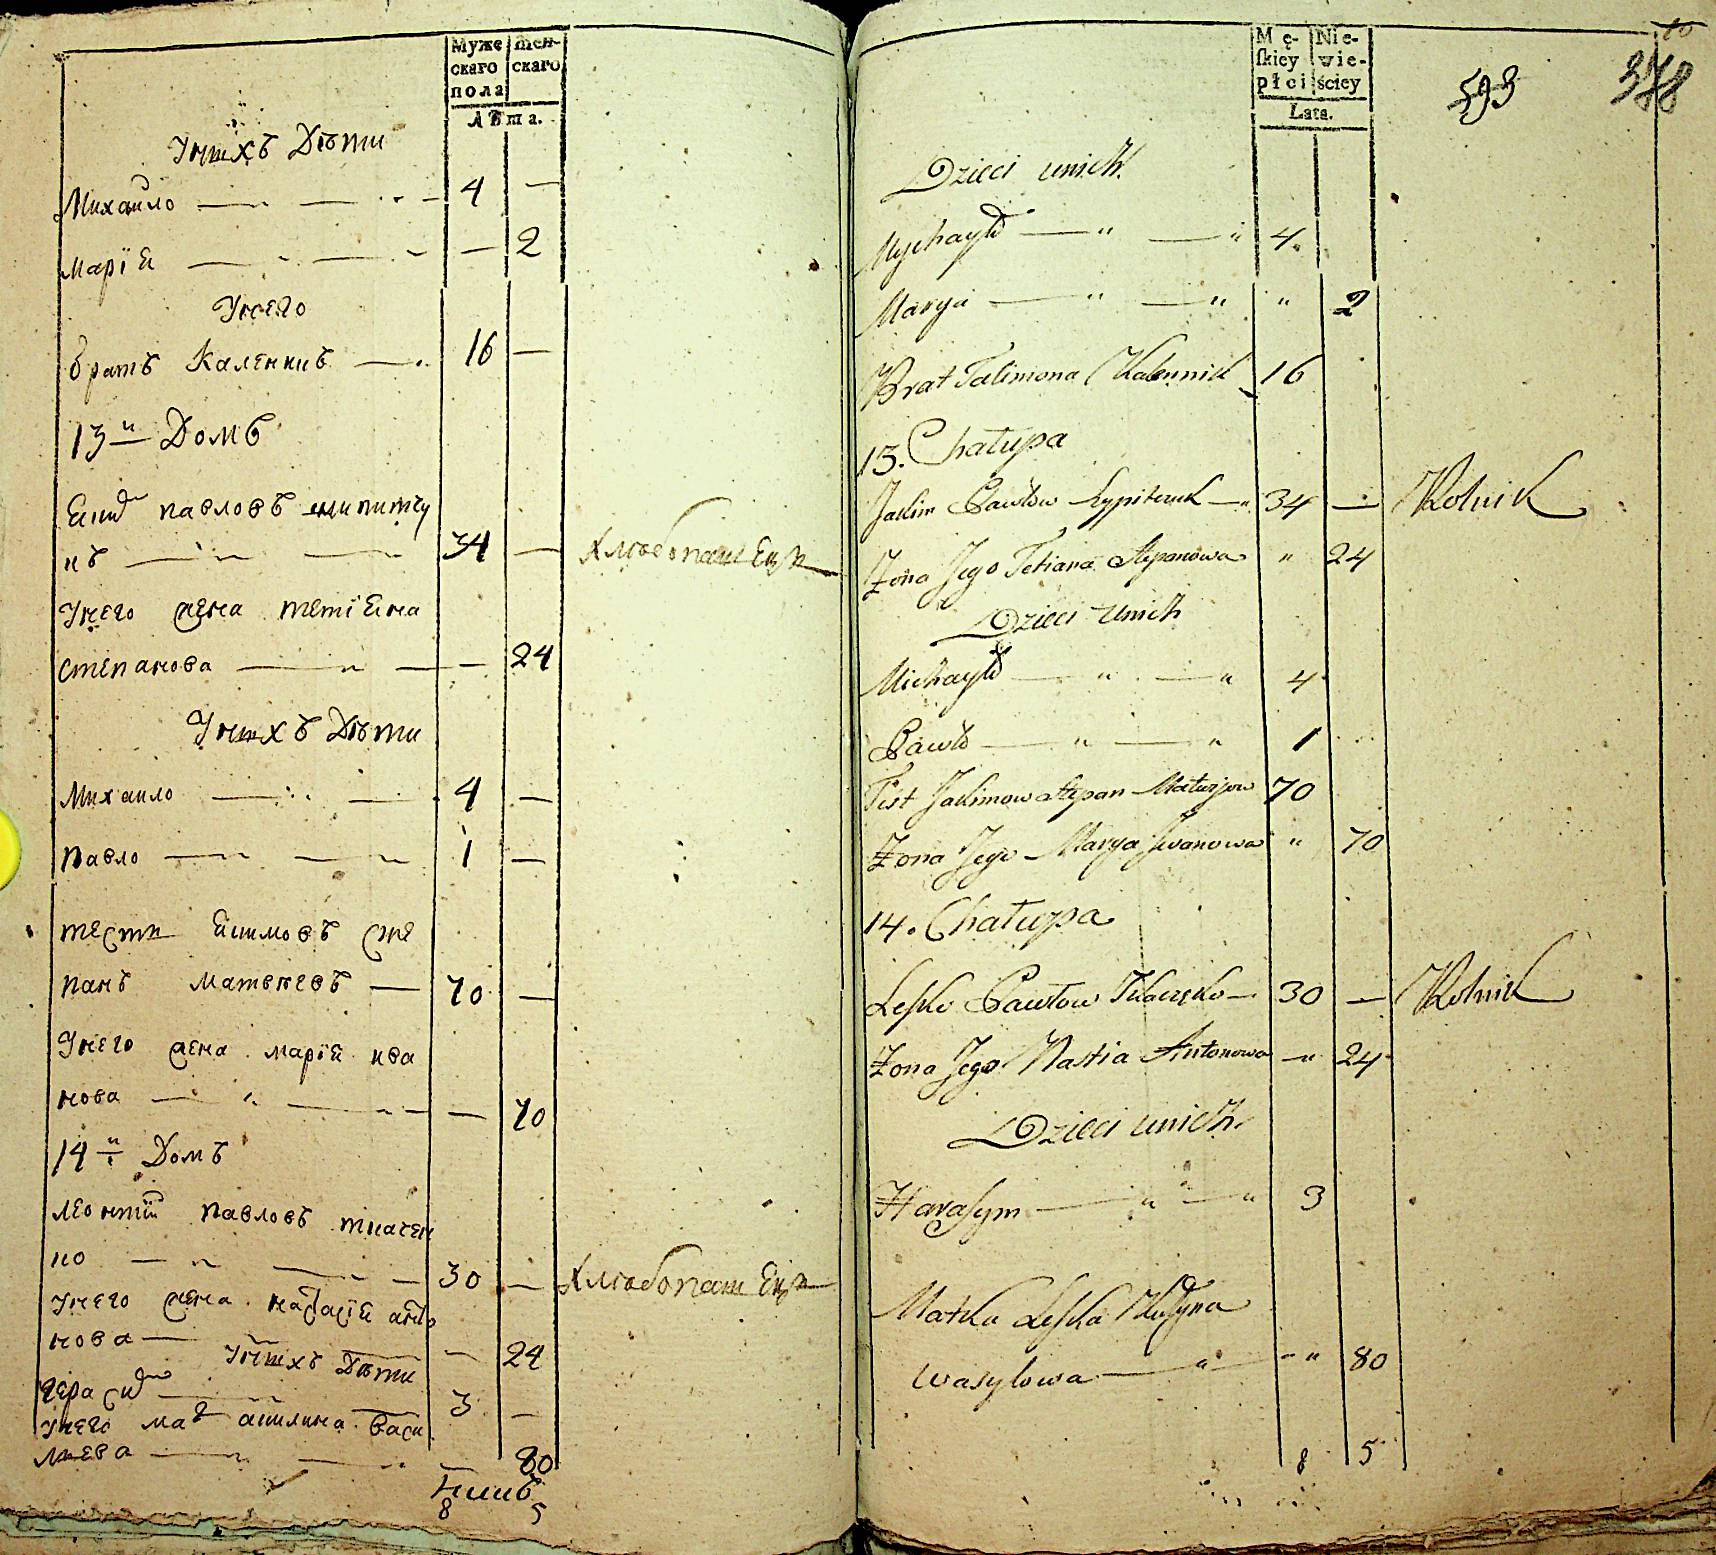 Муже женскаго
скаго скаго
пола
лѣта.
У нихъ Дѣти
Михаило 4 —
Марїя — 2
У него
братъ Каленикъ 16 —
13й Домъ
Якимъ павловъ липитчу
къ 34 — хлѣбопашецъ
У него жена тетіяна
степанова — 24
У нихъ Дѣти
Михаило 4 —
Павло 1 —
тесть якимовъ сте
панъ матвѣевъ — 70 —
У него жена марїя ива
нова — 70
14й Домъ
леонтїй павловъ ткачен
ко 30 — хлѣбопашецъ
У него жена настасїя анто
нова — 24
У нихъ Дѣти
герасимъ 3 —
У него мать акилина васи
лиева — 80
8 5
Mę- Nie-
ſkiey wie-
płci ściey
Lata.
593 378
Dzieci unich
Mychayło 4
Marya " 2
Brat Filimona Kalennik 16
13. Chałupa
Jakim Pawłow Lypitczuk 34 — Rolnik
Żona Jego Tetiana Stepanowa " 24
Dzieci unich
Michayło 4
Pawło 1
Tist Jakimow Stepan Matwijow 70
Żona Jego Marya Iwanowa " 70
14. Chałupa
Leſko Pawłow Tkaczeko 30 — Rolnik
Żona Jego Nastia Antonowa " 24
Dzieci unich
Haraſym 3
Matka Leſka
Wasylowa " 80
8 5